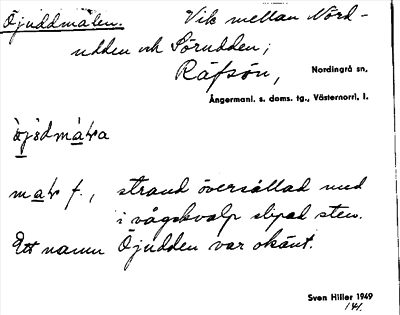 Öjuddmalen. Vik mellan Nord-
udden och Sörudden;
Räfsön, Nordingrå sn,
Ångermanl. s. doms. tg., Västernorrl. l.
f., strand översållad med
i vågskvalp slipad sten.
Ett namn Öjudden var okänt.
Sven Hiller 1949